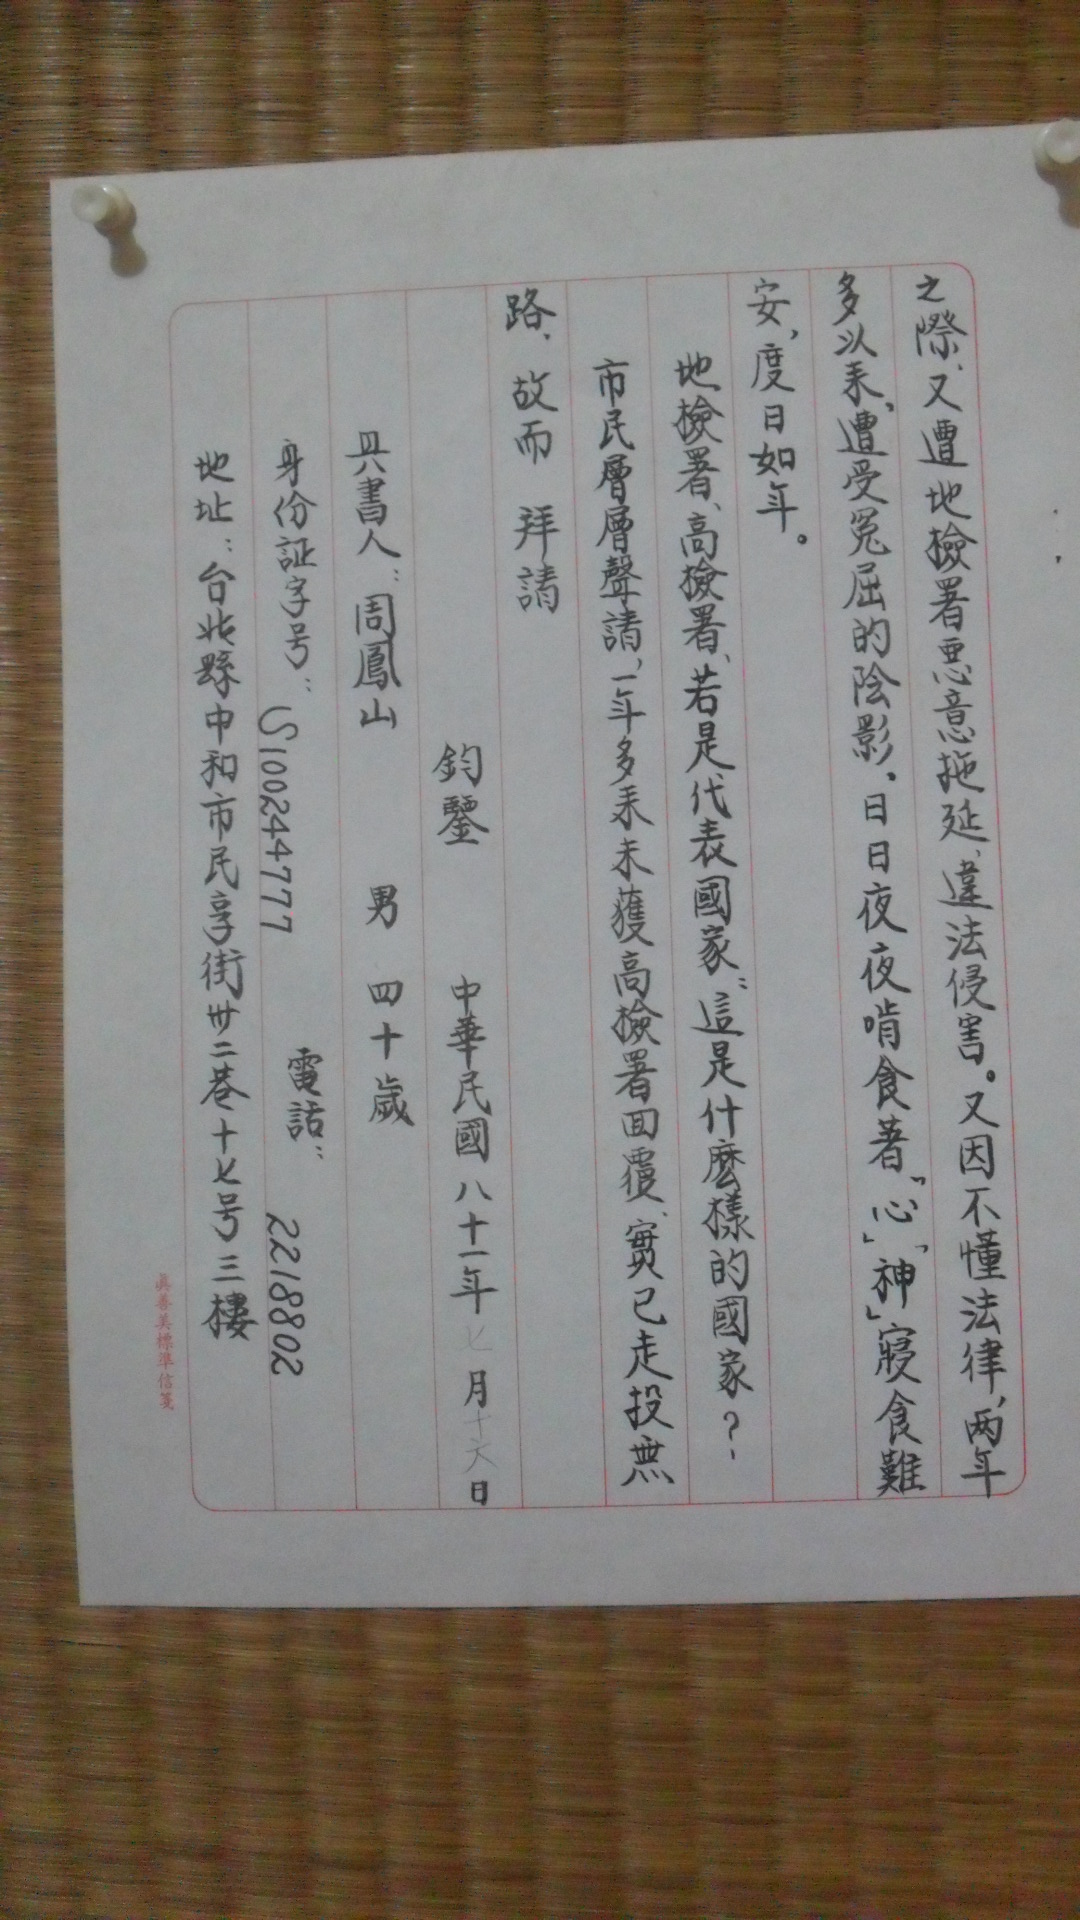 之際、又遭地檢署惡意拖延、違法侵害。又因不懂法律，两年
多以来，遭受冤屈的陰影、日日夜夜啃食著「心」、「神」寢食難
安，度日如年。
地檢署、高檢署、若是代表國家：這是什麼樣的國家？
市民層層聲請，一年多来未獲高檢署回覆、實已走投無
路、故而 拜請
鈞鑒 中華民國八十一年七月十六日
具書人：周鳳山 男 四十歲
身份証字号：S100244777 電話：2218802
地址：台北縣中和市民享街卅二巷十七号三樓
真善美標準信箋